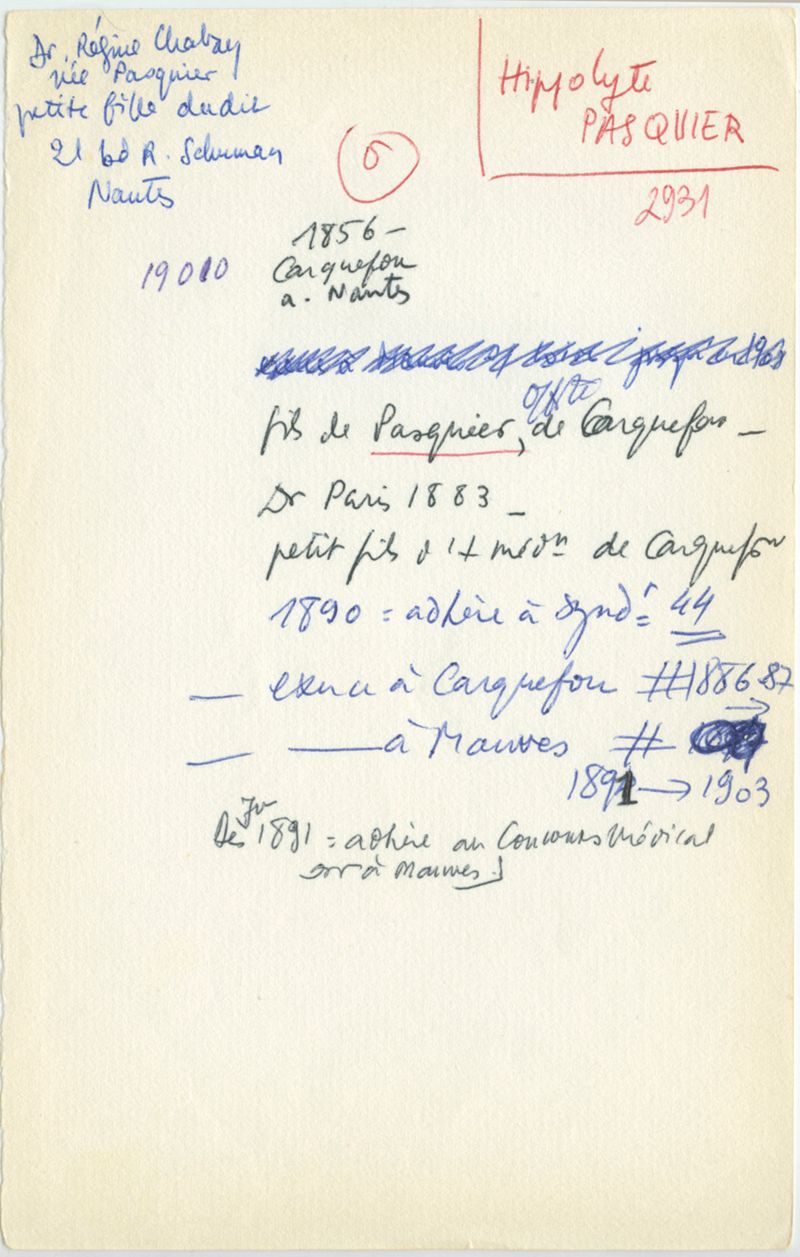 Dr. Régine Chabay
née Pasquier
petite fille dudit
21 bd R. Schuman
Nantes
Hippolyte
PASQUIER
2931
1856 -
Carquefou
a. Nantes
19010
1903
fils de Pasquier, de Carquefou -
Dr Paris 1883 -
petit fils d'1 + médn de Carquefou
1890 = adhère à Synd. 44
— exerce à Carquefou # 1886-87 →
— —— à Mauves #
1891 → 1903
Dès 1891 = adhère au Concours Médical
à Mauves